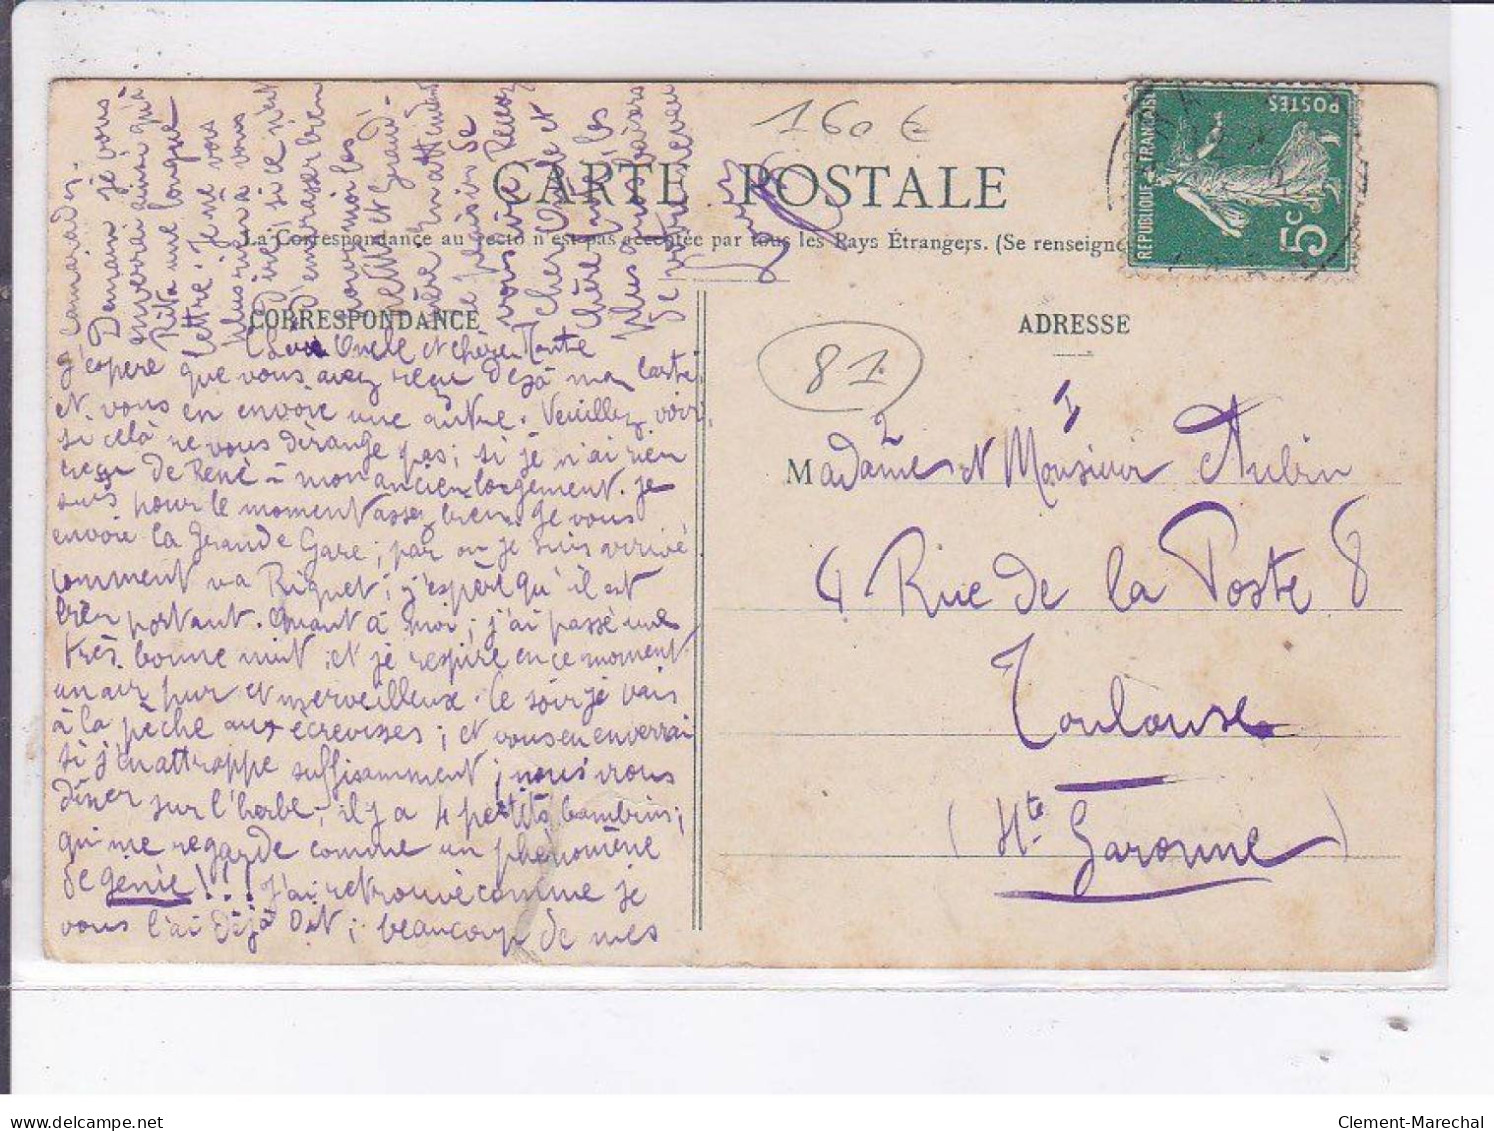 160 €
CARTE POSTALE
La Correspondance au recto n'est pas acceptée par tous les Pays Étrangers. (Se renseigne
RÉPUBLIQUE FRANÇAISE
POSTES
5c
CORRESPONDANCE
Cher Oncle et chère Tante
J'espère que vous avez reçu déjà ma carte;
et vous en envoie une autre. Veuillez voir;
si celà ne vous dérange pas; si je n'ai rien
reçu de René à mon ancien logement. Je
suis pour le moment assez bien. Je vous
envoie la Grande Gare; par où je suis arrivé
comment va Riquet; j'espère qu'il est
bien portant. Quant à moi; j'ai passé une
très bonne nuit; et je respire en ce moment
un air pur et merveilleux. Ce soir je vais
à la pêche aux écrevisses; et vous en enverrai
si j'en attrappe suffisamment; nous irons
dîner sur l'herbe; il y a 4 petits bambins;
qui me regarde comme un phénomène
de génie!!! J'ai retrouvé comme je
vous l'ai déjà dit; beaucoup de mes
camarades.
Demain je vous
enverrai ainsi qu'à
Rita une longue
lettre. Je ne vous
plus rien à vous
dire; si ce n'est
d'embrasser bien
pour moi les
petit et grand.
mère m'attendent
le plaisir de
vous lire. Recevez
cher Oncle et
chère les
plus baisers
de votre neveu
ADRESSE
81
2 1
Madame et Monsieur Aubin
4 Rue de la Poste 8
Toulouse
(Hte Garonne)
Clement-Marechal
delcampe.net